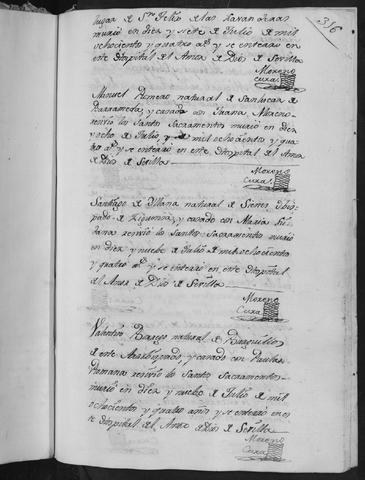 316
lugar de Sn. Felix de las
murio en diez y siete de Julio de mil
ochocientos y quatro as. y se enterro en
este Hospital del Amor de Dios de Sevilla
Moreno
Cura
Manuel Romero natural de Sanlucar de
Barrameda, y casado con Juana Moreno
recivio los Santos Sacramentos murio en diez
y ocho de Julio de mil ochocientos y qua
tro as. y se enterro en este Hospital del Amor
de Dios de Sevilla
Moreno
Cura
Santiago de Yllana natural de Sienes Obis
pado de Ziguenza, y casado con Maria
recivio los Santos Sacramentos murio
en diez y nuebe de Julio de mil ochocientos
y quatro as. y se enterro en este Hospital
del Amor de Dios de Sevilla
Moreno
Cura
Valentin natural de
de este Arzobispado, y casado con
Romana recivio los Santos Sacramentos
murio en diez y nuebe de Julio de mil
ochocientos y quatro años y se enterro en es
te Hospital del Amor de Dios de Sevilla
Moreno
Cura